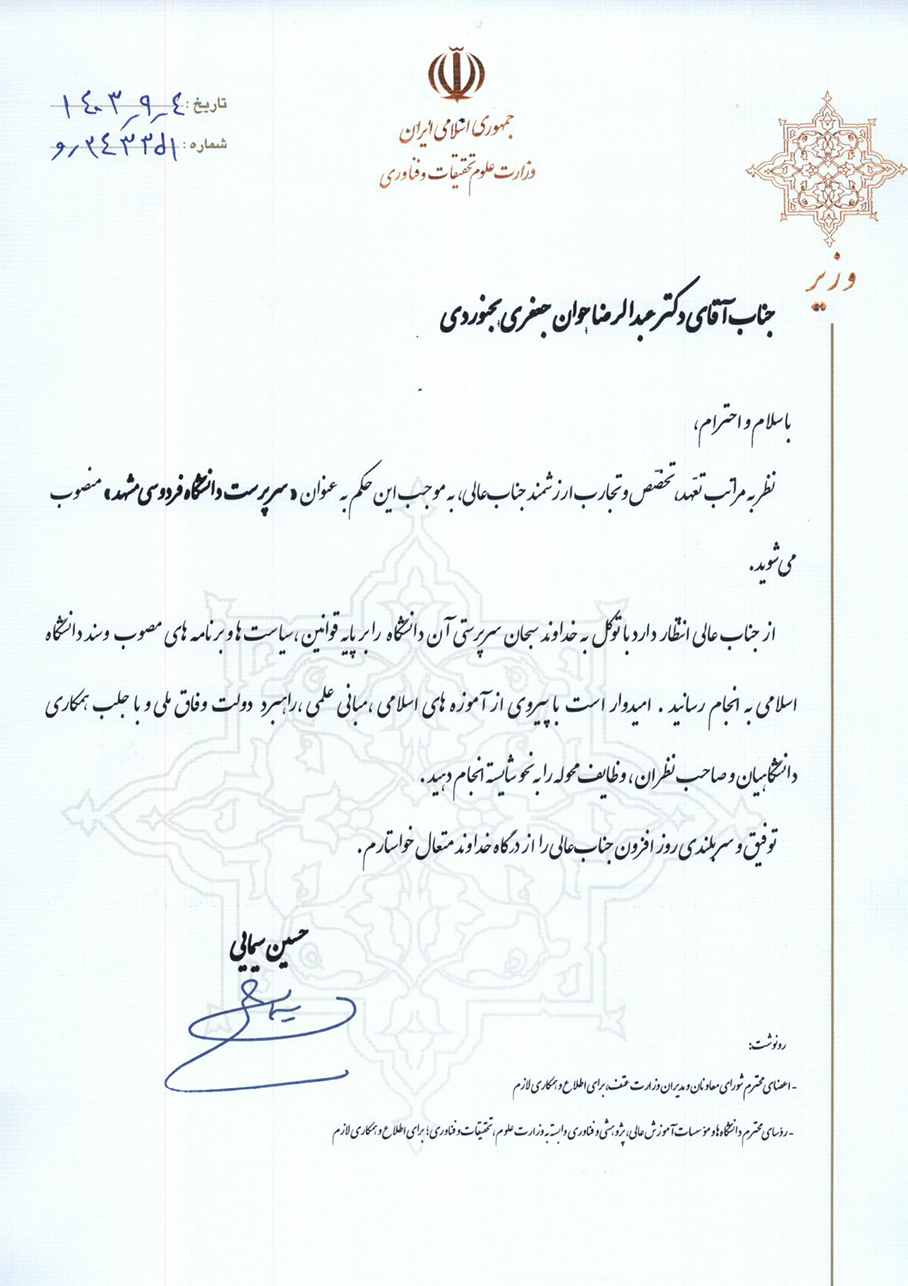 تاریخ: ۱۴۰۳_۹_۴
شماره:
جمهوری اسلامی ایران
وزارت علوم تحقیقات و فناوری
وزیر
جناب آقای دکتر عبدالرضا جوان جعفری بجنوردی
باسلام و احترام،
نظر به مراتب تعهد، تخصّص و تجارب ارزشمند جناب‌عالی، به موجب این حکم به عنوان «سرپرست دانشگاه فردوسی مشهد» منصوب
می‌شوید.
از جناب عالی انتظار دارد با توکل به خداوند سبحان سرپرستی آن دانشگاه را بر پایه قوانین، سیاست ها و برنامه های مصوب و سند دانشگاه
اسلامی به انجام رسانید. امیدوار است با پیروی از آموزه های اسلامی، مبانی علمی، راهبرد دولت وفاق ملی و با جلب همکاری
دانشگاهیان و صاحب نظران، وظایف محوله را به نحو شایسته انجام دهید.
توفیق و سربلندی روز افزون جناب‌عالی را از درگاه خداوند متعال خواستارم.
حسین سیمایی
رونوشت:
- اعضای محترم شورای معاونان و مدیران وزارت عتف، برای اطلاع و همکاری لازم
- رؤسای محترم دانشگاه‌ها و مؤسسات آموزش عالی، پژوهشی و فناوری وابسته به وزارت علوم، تحقیقات و فناوری؛ برای اطلاع و همکاری لازم